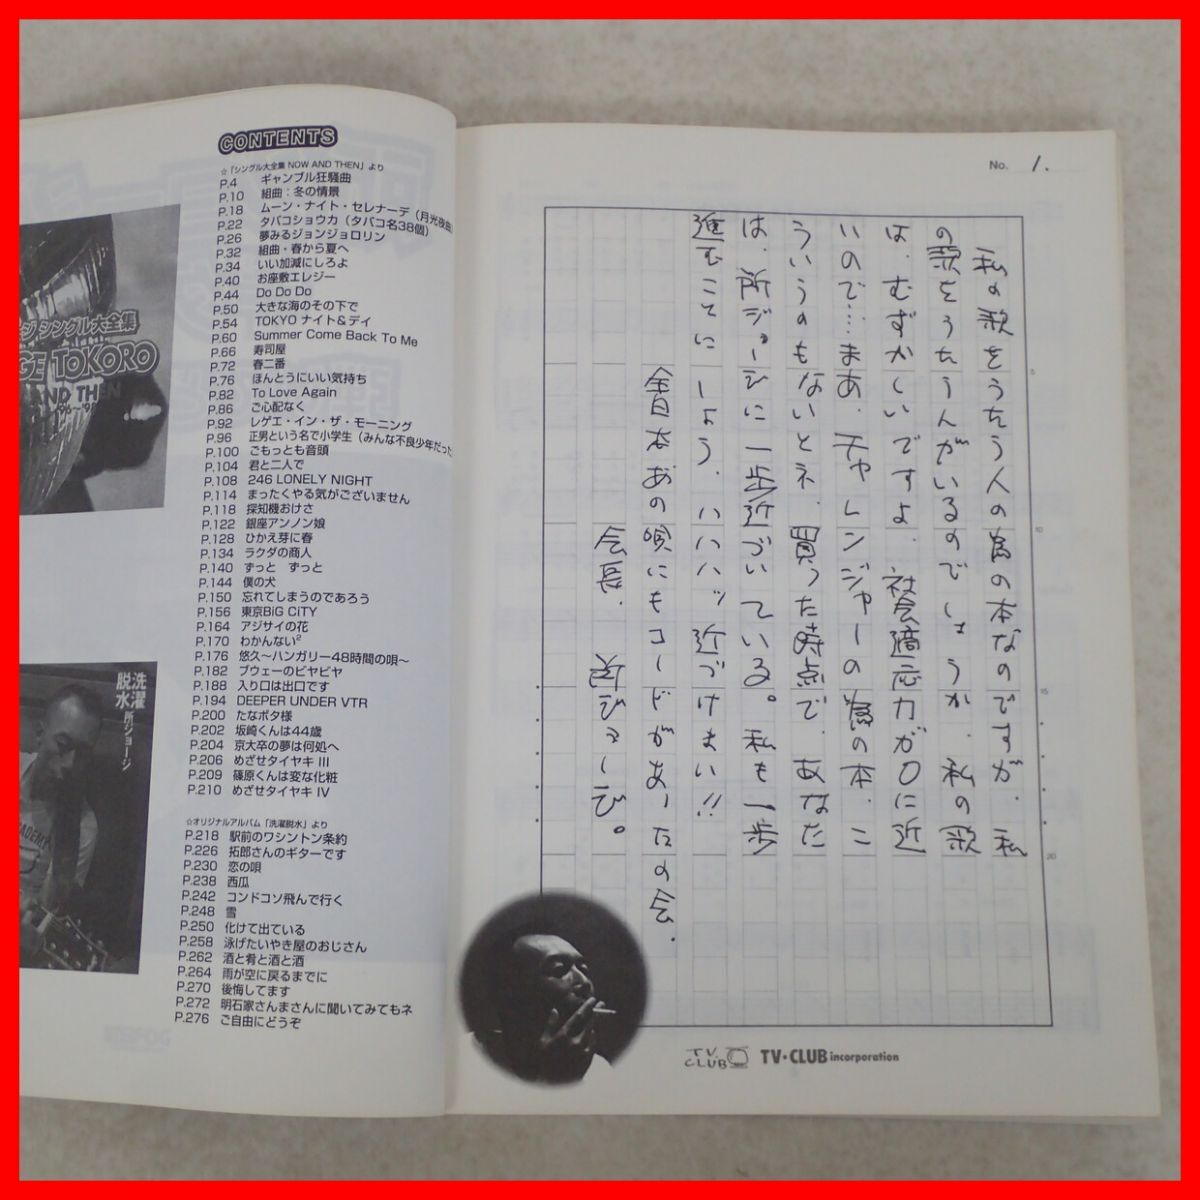 CONTENTS
☆「シングル大全集 NOW AND THEN」より
P.4 ギャンブル狂騒曲
P.10 組曲:冬の情景
P.18 ムーン・ナイト・セレナーデ(月光夜曲)
P.22 タバコショウカ(タバコ名38個)
P.26 夢みるジョンジョロリン
P.32 組曲・春から夏へ
P.34 いい加減にしろよ
P.40 お座敷エレジー
P.44 Do Do Do
P.50 大きな海のその下で
P.54 TOKYO ナイト&デイ
P.60 Summer Come Back To Me
P.66 寿司屋
P.72 春二番
P.76 ほんとうにいい気持ち
P.82 To Love Again
P.86 ご心配なく
P.92 レゲエ・イン・ザ・モーニング
P.96 正男という名で小学生(みんな不良少年だった
P.100 ごもっとも音頭
P.104 君と二人で
P.108 246 LONELY NIGHT
P.114 まったくやる気がございません
P.118 探知機おけさ
P.122 銀座アンノン娘
P.128 ひかえ芽に春
P.134 ラクダの商人
P.140 ずっと ずっと
P.144 僕の犬
P.150 忘れてしまうのであろう
P.156 東京BiG CiTY
P.164 アジサイの花
P.170 わかんない²
P.176 悠久~ハンガリー48時間の唄~
P.182 ブウェーのビヤビヤ
P.188 入り口は出口です
P.194 DEEPER UNDER VTR
P.200 たなボタ様
P.202 坂崎くんは44歳
P.204 京大卒の夢は何処へ
P.206 めざせタイヤキ III
P.209 篠原くんは変な化粧
P.210 めざせタイヤキ IV
☆オリジナルアルバム「洗濯脱水」より
P.218 駅前のワシントン条約
P.226 拓郎さんのギターです
P.230 恋の唄
P.238 西瓜
P.242 コンドコソ飛んで行く
P.248 雪
P.250 化けて出ている
P.258 泳げたいやき屋のおじさん
P.262 酒と肴と酒と酒
P.264 雨が空に戻るまでに
P.270 後悔してます
P.272 明石家さんまさんに聞いてみてもネ
P.276 ご自由にどうぞ
ジ シングル大全集
GE TOKORO
AND THEN
洗濯
脱水
所ジョージ
No. 1.
私の歌をうたう人の為の本なのですが、私
の歌をうたう人がいるのでしょうか、私の歌
は、むずかしいですよ、社会適応力が0に近
いので……まあ、チャレンジャーの為の本、こ
ういうのもないとネ、買った時点で、あなた
は、所ジョージに一歩近づいている。私も一歩
進むことにしよう、ハハハッ近づけまい!!
全日本あの唄にもコードがあったの会、
会長、所ジョージ。
5
10
15
20
T.V.
CLUB
TV・CLUB incorporation